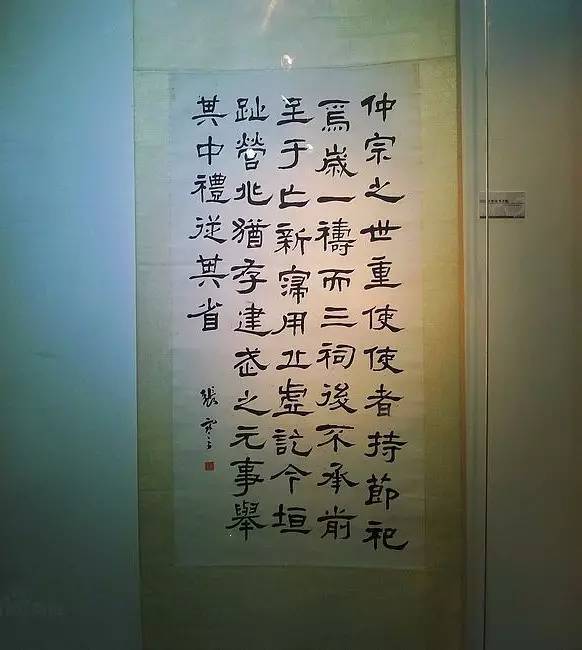 仲宗之世重使使者持節祀
焉歲一禱而三祠後不承前
至于亡新寖用丘虛訖今垣
趾營兆猶存建武之元事舉
其中禮從其省
張